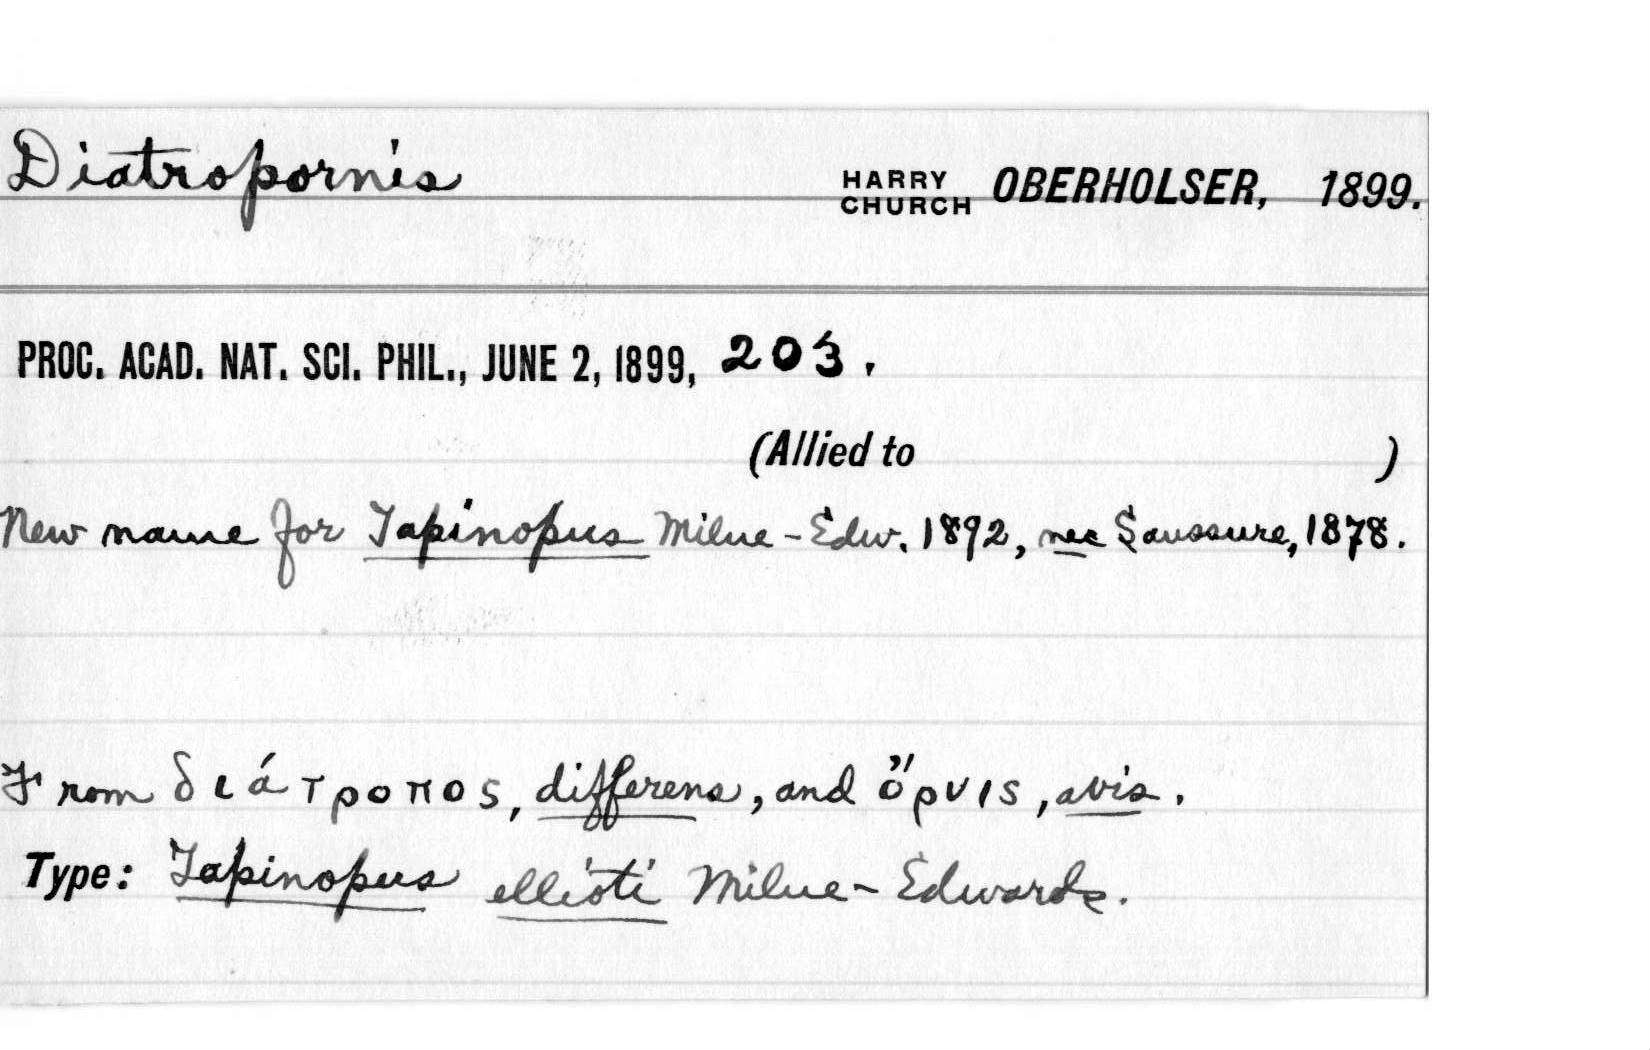 Diatropornis HARRY CHURCH OBERHOLSER, 1899.
PROC. ACAD. NAT. SCI. PHIL., JUNE 2, 1899, 203.
(Allied to )
New name for Tapinopus Milne-Edw. 1892, nec Saussure, 1878.
From διάτροπος, differens, and ὄρνις, avis.
Type: Tapinopus ellioti Milne-Edwards.